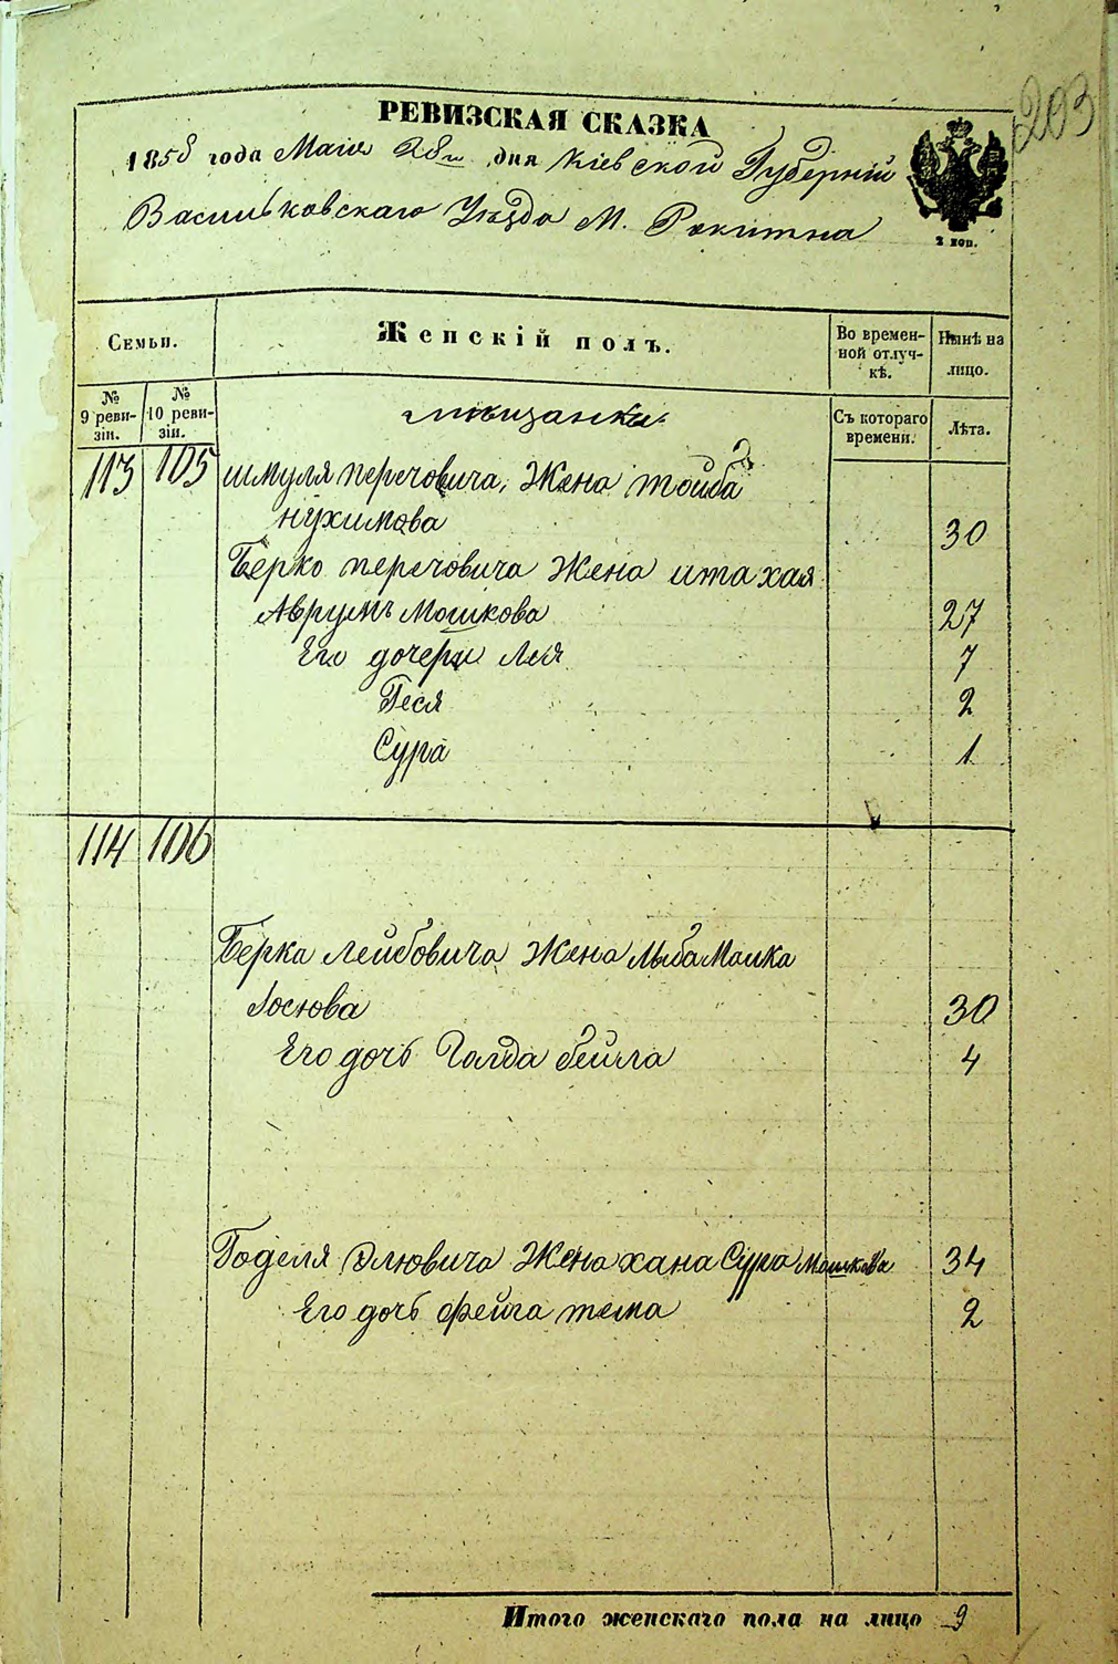 203
РЕВИЗСКАЯ СКАЗКА
1858 года Маія 28го дня Кіевской Губерніи
Васильковскаго Уѣзда М. Рокитна
2 коп.
Семьи.
Женскій полъ.
Во времен-
ной отлуч-
кѣ.
Нынѣ на
лицо.
№
9 реви-
зіи.
№
10 реви-
зіи.
мѣщанки
Съ котораго
времени.
Лѣта.
113 105 шмуля перечовича, Жена тойба
нухимова 30
Берко перечовича Жена ита хая
Аврумъ Мошкова 27
Его дочери Лея 7
Геся 2
Сура 1
114 106
Берка Лейбовича Жена Малка
Іосіова 30
Его дочь Голда бейла 4
Годеля Жена хана Сура Мошкова 34
Его дочь фейга тема 2
Итого женскаго пола на лицо 9